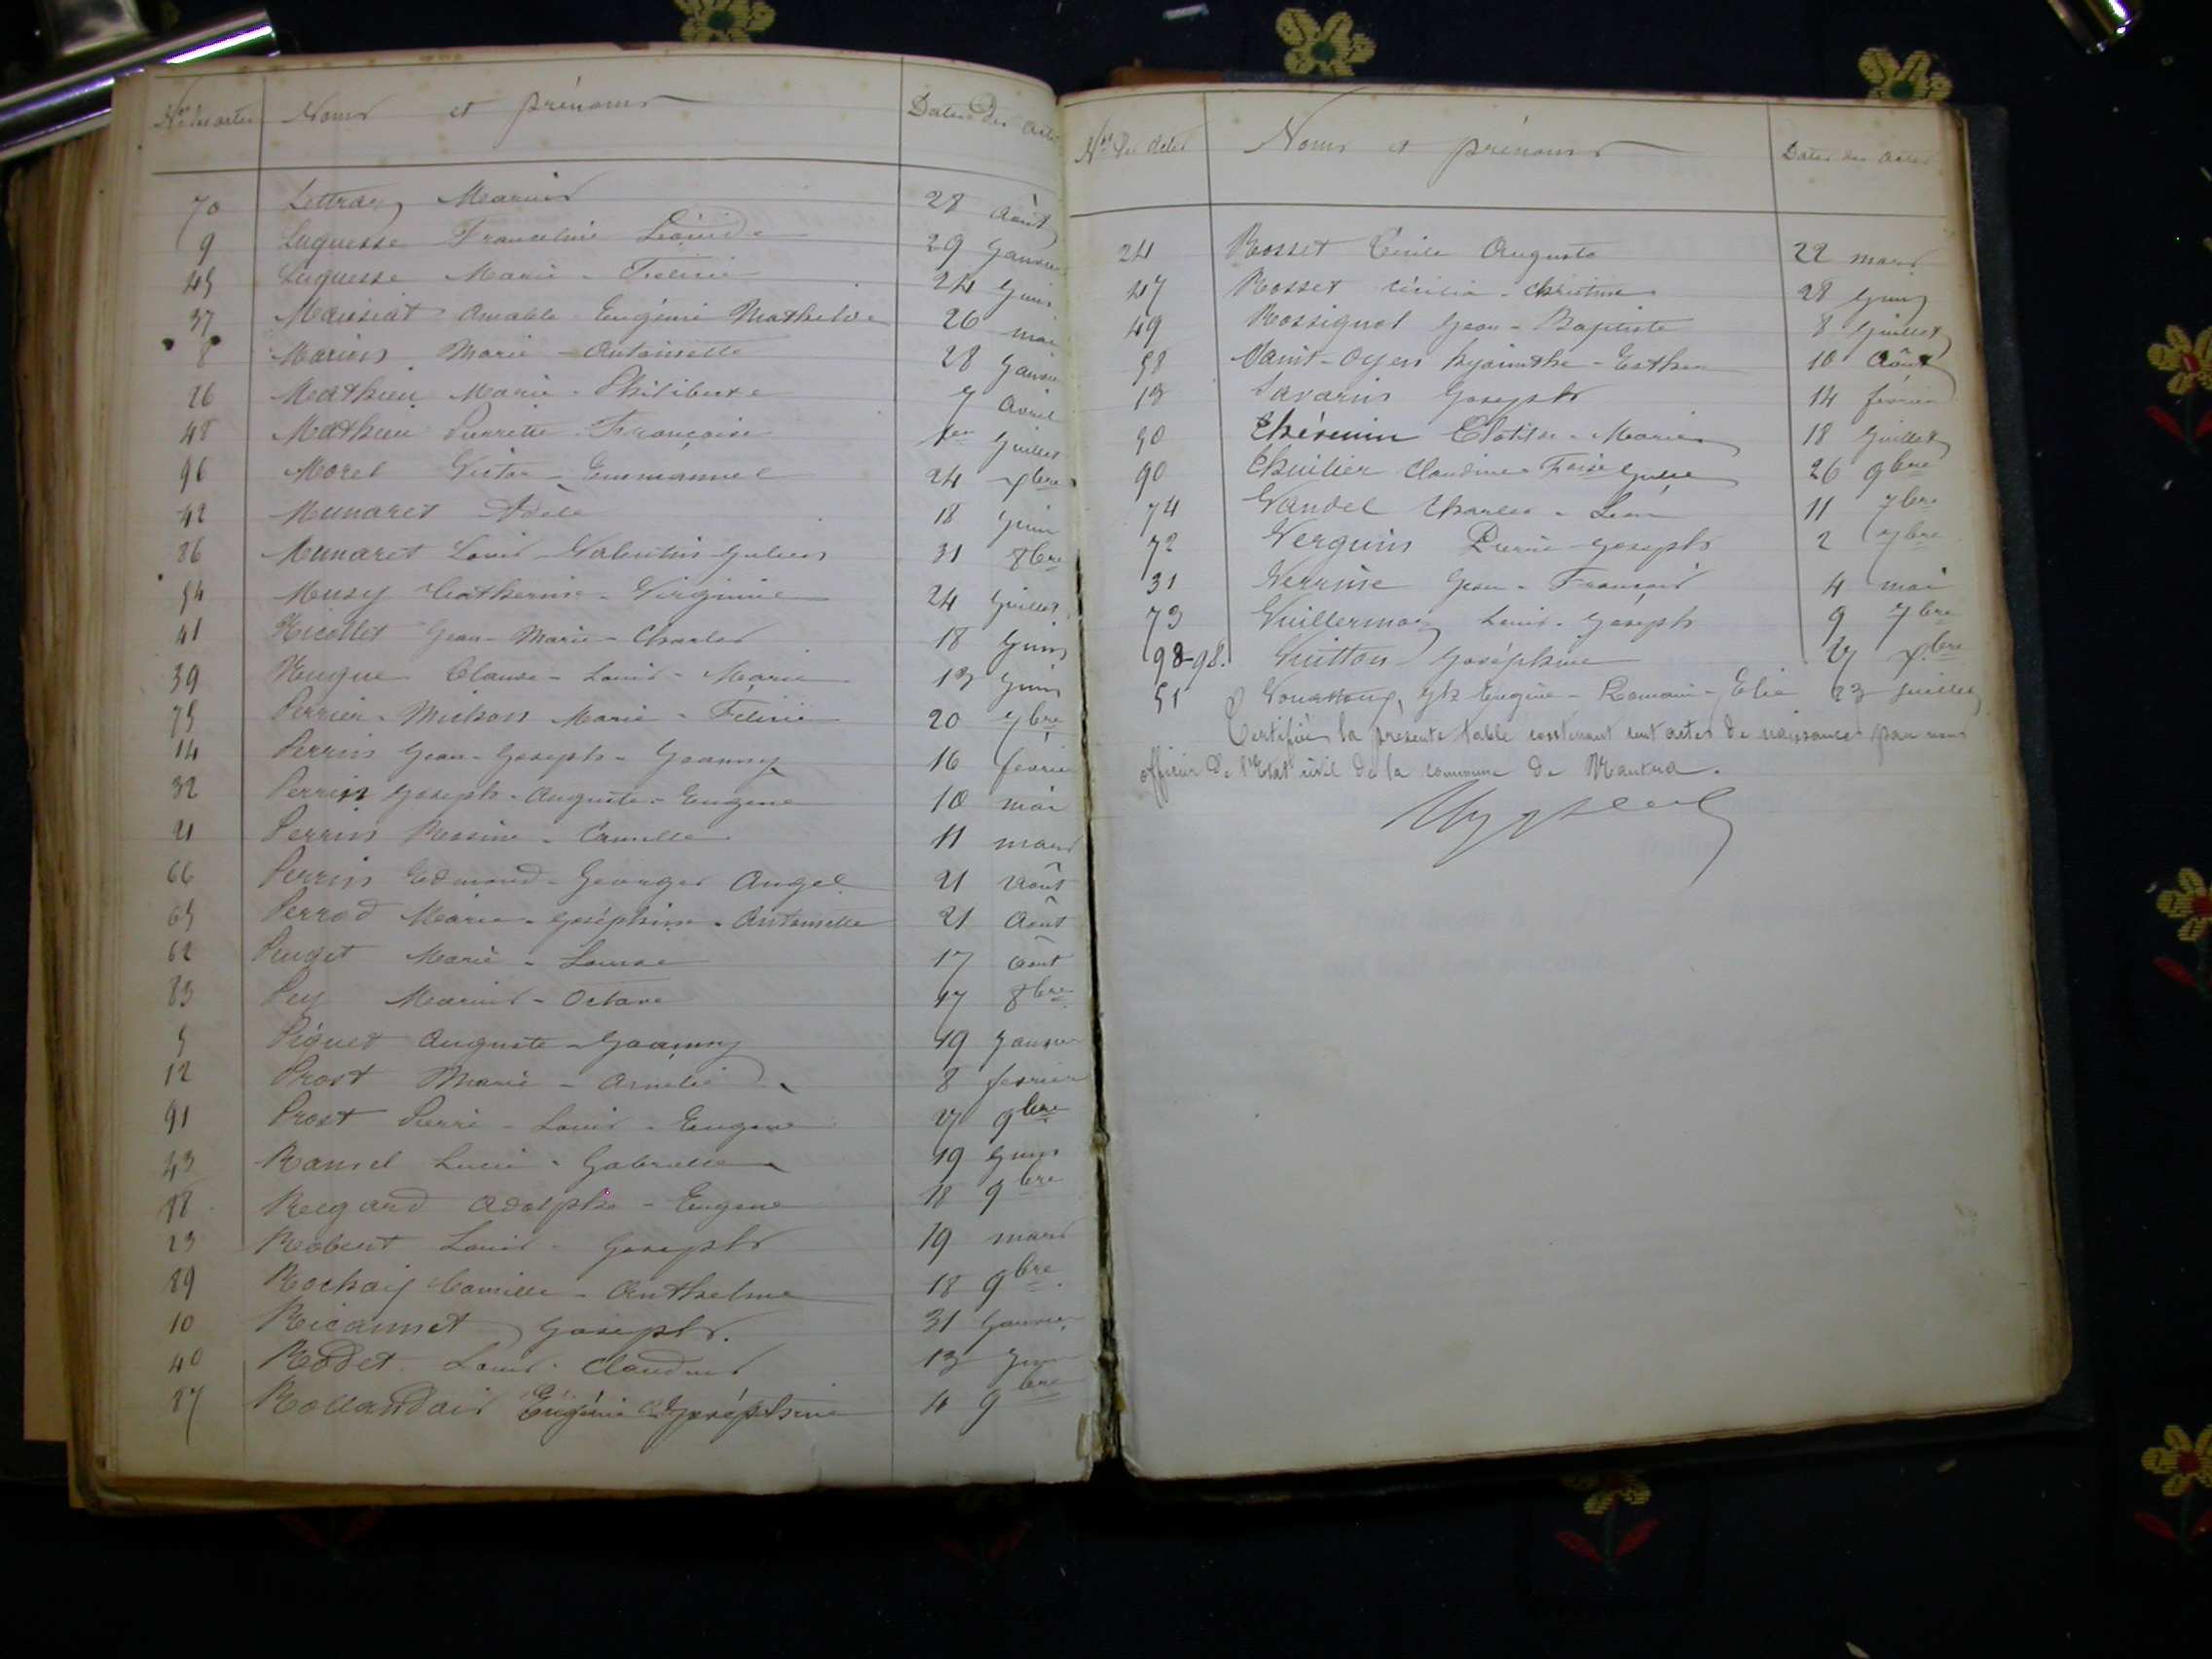 Nos des actes Noms et prénoms Dates des actes
70 Lettray Marius 28 Août
9 Luquesse Franceline Léonide 29 Janvier
45 Luquesse Marie - Félicie 24 Juin
37 Mausiat Amable Eugénie Mathilde 26 mai
8 Marion Marie - Antoinette 28 Janvier
26 Mathieu Marie - Philiberte 7 Avril
48 Mathieu Pierrette - Françoise 1er Juillet
96 Morel Victor - Emmanuel 24 Xbre
42 Munaret Adèle 18 Juin
86 Munaret Louis - Valentin Julien 31 8bre
54 Musy Catherine - Virginie 24 Juillet
41 Nicollet Jean - Marie - Charles 18 Juin
39 Claude - Louis - Marie 13 Juin
75 Perrier - Michon Marie - Félicie 20 7bre
14 Perrin Jean - Joseph - Joanny 16 février
32 Perrin Joseph - Auguste - Eugène 10 mai
21 Perrin - Camille 11 mars
66 Perrin Edmond - Georges Angel 21 Août
65 Perrod Marie - Joséphine - Antoinette 21 Août
62 Puget Marie - Louise 17 Août
83 Pey Marius - Octave 17 8bre
5 Piquet Auguste - Joanny 19 Janvier
12 Prost Marie - Amélie 8 février
91 Prost Pierre - Louis - Eugène 27 9bre
43 Ramel Lucie - Gabrielle 19 Juin
88 Regard Adolphe - Eugène 18 9bre
23 Robert Louis - Joseph 19 mars
89 Rochaix Camille - Anthelme 18 9bre
10 Ricannet Joseph. 31 Janvier
40 Rodet Louis - Claudius 13 Juin
87 Rollandais Eugénie Joséphine 4 9bre
Nos des actes Noms et prénoms Dates des actes
24 Rosset Cécile Augusta 22 mars
47 Rosset Cécilia - Christine 28 Juin
49 Rossignol Jean - Baptiste 8 Juillet
58 Saint-Oyen hyacinthe - Esther 10 Août
13 Savarin Joseph 14 février
50 Thévenin Clotilde - Marie 18 Juillet
90 Thuilier Claudine Foise Julie 26 9bre
74 Vandel Charles - Léon 11 7bre
72 Verguin Pierre - Joseph 2 7bre
31 Jean - François 4 mai
73 Vuillermoz Louis - Joseph 9 7bre
98-98. Vuitton Joséphine 27 Xbre
51 Eugène - Romain - Elie 23 Juillet
Certifiée la présente table contenant cent actes de naissances par nous
officier de l'Etat civil de la commune de